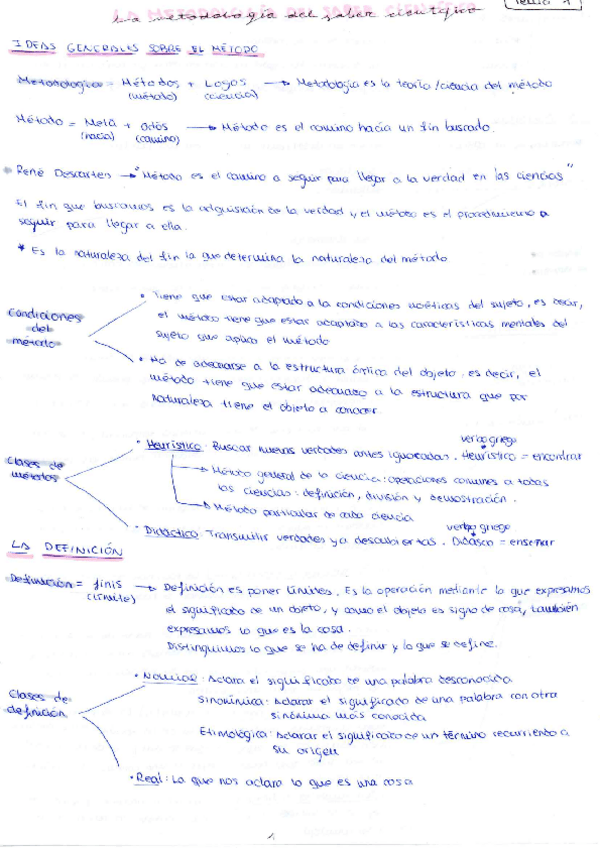 La metodología del saber científico
Tema 1
IDEAS GENERALES SOBRE EL MÉTODO
Metodología = Métodos + Logos → Metodología es la teoría/ciencia del método
(método) (ciencia)
Método = Metá + Odós → Método es el camino hacia un fin buscado.
(hacia) (camino)
René Descartes → "Método es el camino a seguir para llegar a la verdad en las ciencias"
El fin que buscamos es la adquisición de la verdad y el método es el procedimiento a
seguir para llegar a ella.
* Es la naturaleza del fin la que determina la naturaleza del método.
Condiciones
del
método
• Tiene que estar adaptado a la condiciones noéticas del sujeto, es decir,
el método tiene que estar adaptado a las características mentales del
sujeto que aplica el método
• Ha de adecuarse a la estructura óntica del objeto, es decir, el
método tiene que estar adecuado a la estructura que por
naturaleza tiene el objeto a conocer.
Clases de
métodos
verbo griego
• Heurístico: Buscar nuevas verdades antes ignoradas. Heurístico = encontrar
→ Método general de la ciencia: operaciones comunes a todas
las ciencias: definición, división y demostración.
→ Método particular de cada ciencia
verbo griego
• Didáctico: Transmitir verdades ya descubiertas. Didasco = enseñar
LA DEFINICIÓN
Definición = finis → Definición es poner límites. Es la operación mediante la que expresamos
(límite) el significado de un objeto, y como el objeto es signo de cosa, también
expresamos lo que es la cosa.
Distinguimos lo que se ha de definir y lo que se define.
Clases de
definición
• Nominal: Aclara el significado de una palabra desconocida
Sinonímica: Aclarar el significado de una palabra con otra
sinónima más conocida
Etimológica: Aclarar el significado de un término recurriendo a
su origen
• Real: La que nos aclara lo que es una cosa